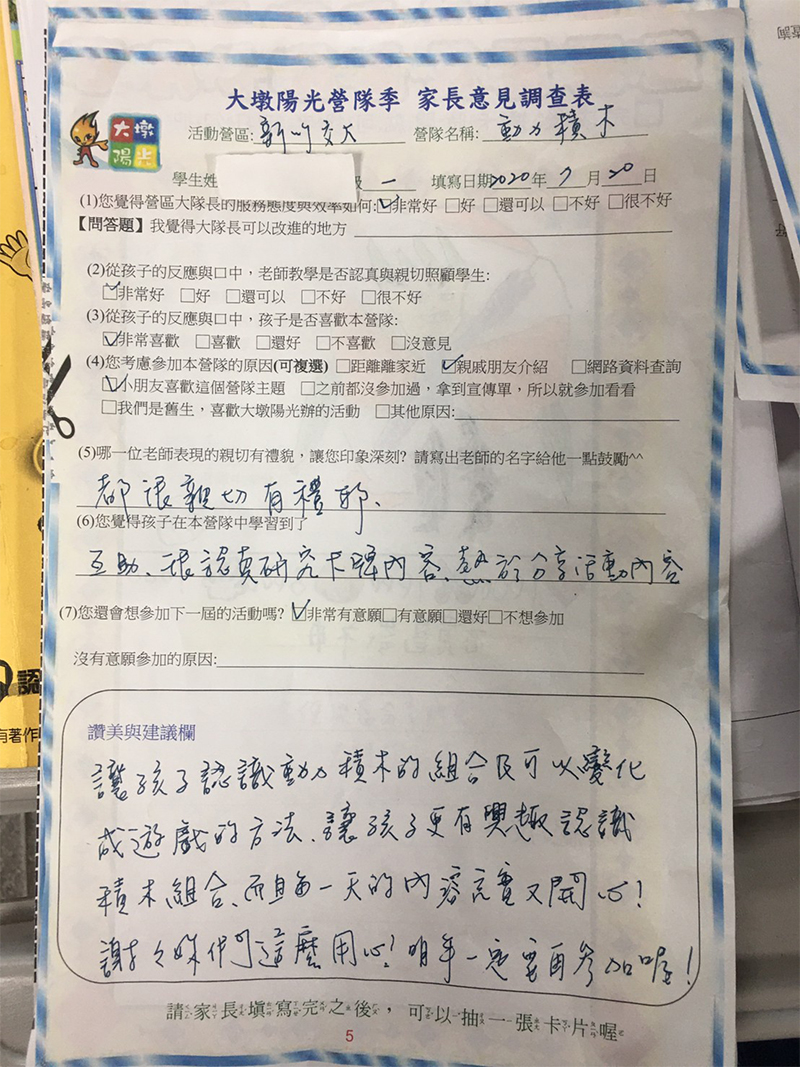 大墩陽光營隊季 家長意見調查表
大墩陽光
活動營區:新竹交大 營隊名稱:動力積木
學生姓 級 一 填寫日期2020年7月20日
(1)您覺得營區大隊長的服務態度與效率如何:☑非常好 □好 □還可以 □不好 □很不好
【問答題】我覺得大隊長可以改進的地方
(2)從孩子的反應與口中,老師教學是否認真與親切照顧學生:
☑非常好 □好 □還可以 □不好 □很不好
(3)從孩子的反應與口中,孩子是否喜歡本營隊:
☑非常喜歡 □喜歡 □還好 □不喜歡 □沒意見
(4)您考慮參加本營隊的原因(可複選)□距離離家近 ☑親戚朋友介紹 □網路資料查詢
☑小朋友喜歡這個營隊主題 □之前都沒參加過,拿到宣傳單,所以就參加看看
□我們是舊生,喜歡大墩陽光辦的活動 □其他原因:
(5)哪一位老師表現的親切有禮貌,讓您印象深刻? 請寫出老師的名字給他一點鼓勵^^
都很親切有禮耶、
(6)您覺得孩子在本營隊中學習到了
互助、很認真研究卡牌內容、熱於分享活動內容
(7)您還會想參加下一屆的活動嗎? ☑非常有意願□有意願□還好□不想參加
沒有意願參加的原因:
讚美與建議欄
讓孩子認識動力積木的組合及可以變化
成遊戲的方法、讓孩子更有興趣認識
積木組合、而且每一天的內容充實又開心!
謝謝妳們這麼用心!明年一定要再參加喔!
請家長填寫完之後,可以抽一張卡片喔
5
認
有著作
查詢